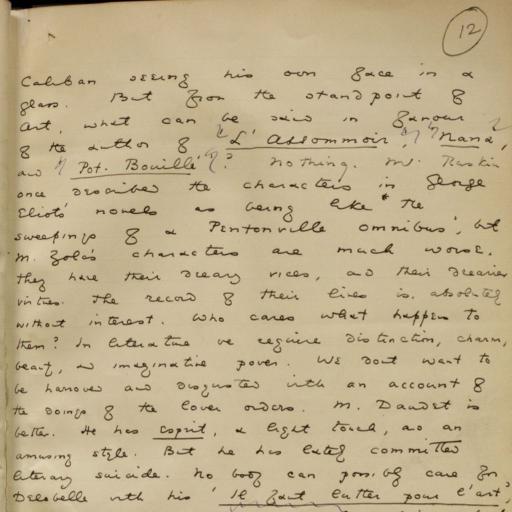 12
Caliban seeing his own face in a
glass. But from the standpoint of
art, what can be said in favour
of the author of 'L'Assommoir', 'Nana',
and 'Pot-Bouille'? Nothing. Mr Ruskin
once described the characters in George
Eliot's novels as being like 'the
sweepings of a Pentonville omnibus', but
M. Zola's characters are much worse.
They have their dreary vices, and their drearier
virtues. The record of their lives is absolutely
without interest. Who cares what happens to
them? In literature we require distinction, charm,
beauty, and imaginative power. We dont want to
be harrowed and disgusted with an account of
the doings of the lower orders. M. Daudet is
better. He has esprit, a light touch, and an
amusing style. But he has lately committed
literary suicide. No body can possibly care for
Delobelle with his 'Il faut lutter pour l'art',